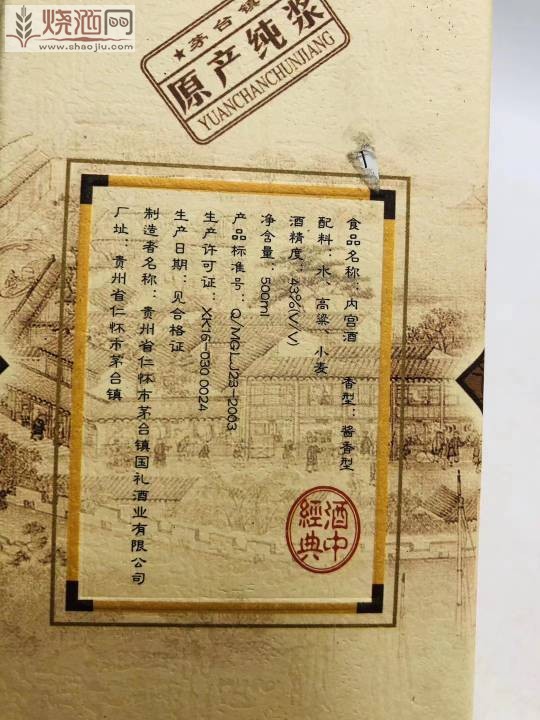 烧酒网
www.shaojiu.com
★茅台镇
原产纯浆
YUANCHANCHUNJIANG
食品名称：内宫酒 香型：酱香型
配料：水、高粱、小麦
酒精度：43%(V/V)
净含量：500ml
产品标准号：Q/MGLJ23-2003
生产许可证：XK16-030 0024
生产日期：见合格证
制造者名称：贵州省仁怀市茅台镇国礼酒业有限公司
厂址：贵州省仁怀市茅台镇
酒中經典